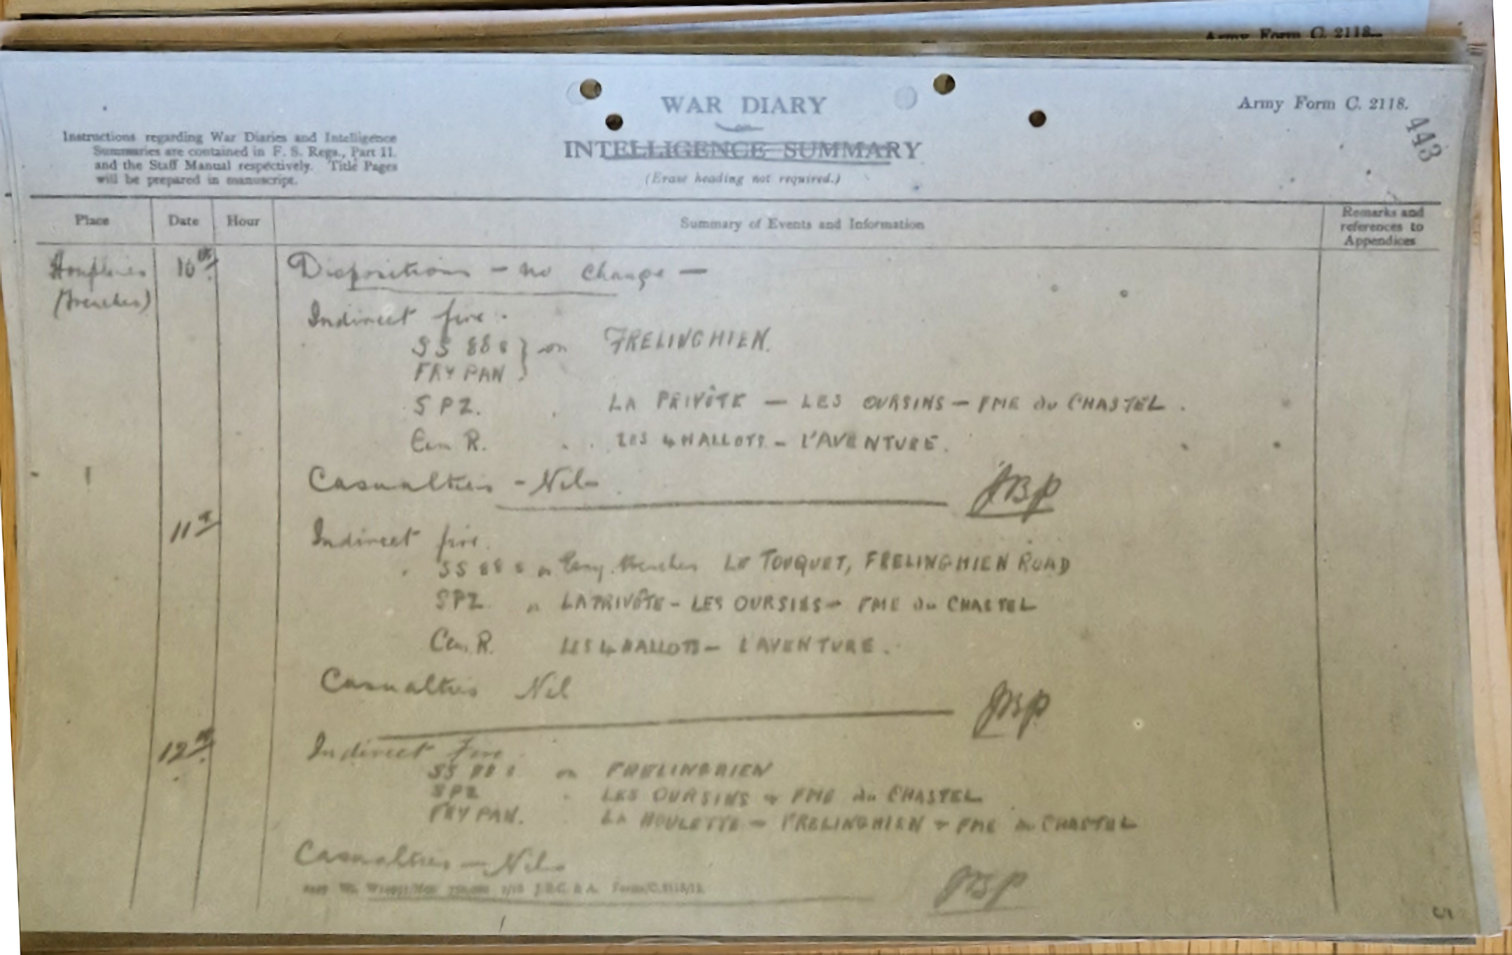 Army Form C. 2118.
WAR DIARY
Army Form C. 2118.
443
INTELLIGENCE SUMMARY
(Erase heading not required.)
Instructions regarding War Diaries and Intelligence
Summaries are contained in F. S. Regs., Part II.
and the Staff Manual respectively. Title Pages
will be prepared in manuscript.
Place Date Hour Summary of Events and Information Remarks and references to Appendices
Houplines 10th Dispositions - no change -
(Trenches)
Indirect fire.
SS 88 8 } on FRELINGHIEN.
FRY PAN }
SPZ. LA PRIVÔTE - LES OURSINS - FME du CHASTEL.
Cem R. LES 4 HALLOTS - L'AVENTURE.
Casualties - Nil
JBP
11th Indirect fire.
SS 88 8 on Eeny. trenches LE TOUQUET, FRELINGHIEN ROAD
SPZ. " LA PRIVÔTE - LES OURSIES - FME du CHASTEL
Cem. R. LES 4 HALLOTS - L'AVENTURE.
Casualties Nil
JBP
12th Indirect Fire
SS 88 8 on FRELINGHIEN
SPZ LES OURSINS + FME du CHASTEL
FRY PAN. LA HOULETTE - FRELINGHIEN + FME du CHASTEL
Casualties - Nil
JBP